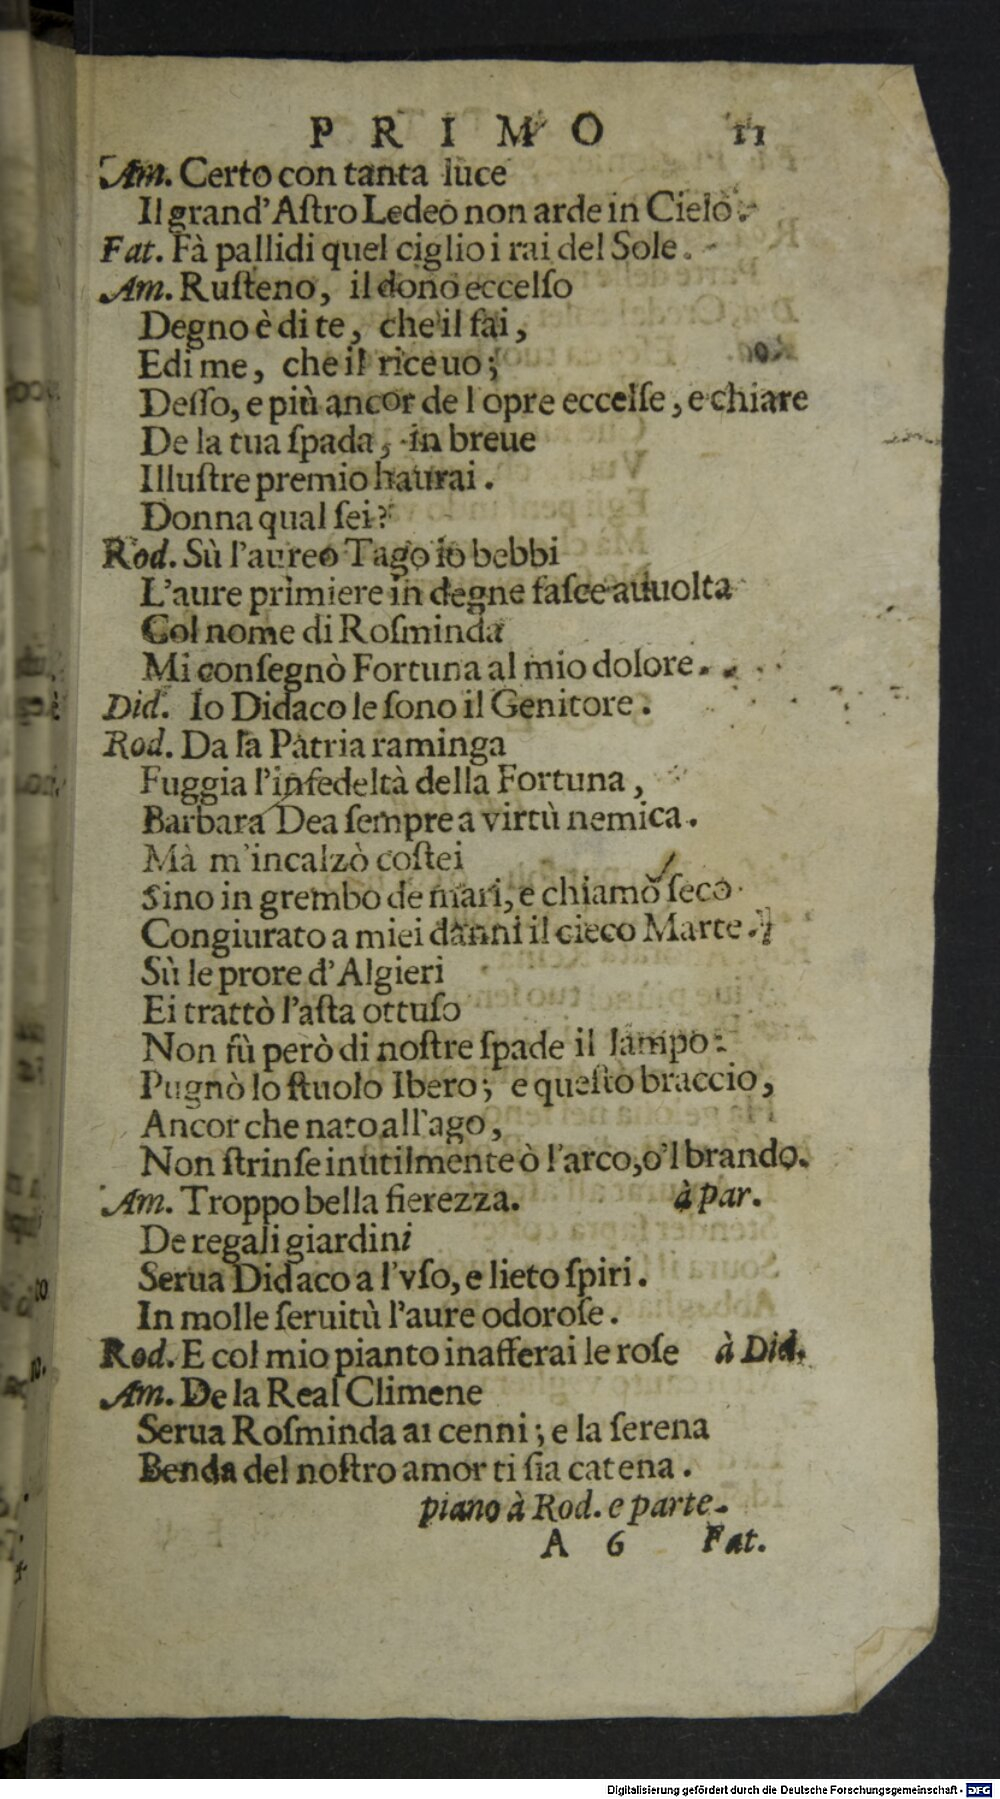 PRIMO 11
Am. Certo con tanta luce
Il grand'Aſtro Ledeo non arde in Cielo.
Fat. Fà pallidi quel ciglio i rai del Sole.
Am. Ruſteno, il dono eccelſo
Degno è di te, che il fai,
E di me, che il riceuo;
Deſſo, e più ancor de l opre eccelſe, e chiare
De la tua ſpada, in breue
Illuſtre premio haurai.
Donna qual ſei?
Rod. Sù l'aureo Tago io bebbi
L'aure primiere in degne faſce auuolta
Col nome di Roſminda
Mi conſegnò Fortuna al mio dolore.
Did. Io Didaco le ſono il Genitore.
Rod. Da la Patria raminga
Fuggia l'infedeltà della Fortuna,
Barbara Dea ſempre a virtù nemica.
Mà m'incalzò coſtei
Sino in grembo de mari, e chiamò ſeco
Congiurato a miei danni il cieco Marte.
Sù le prore d'Algieri
Ei trattò l'aſta ottuſo
Non fù però di noſtre ſpade il lampo:
Pugnò lo ſtuolo Ibero; e queſto braccio,
Ancor che nato all'ago,
Non ſtrinſe inutilmente ò l'arco, o'l brando.
Am. Troppo bella fierezza. à par.
De regali giardini
Serua Didaco a l'vſo, e lieto ſpiri.
In molle ſeruitù l'aure odoroſe.
Rod. E col mio pianto inafferai le roſe à Did.
Am. De la Real Climene
Serua Roſminda ai cenni; e la ſerena
Benda del noſtro amor ti ſia catena.
piano à Rod. e parte.
A 6 Fat.
Digitalisierung gefördert durch die Deutsche Forschungsgemeinschaft - DFG